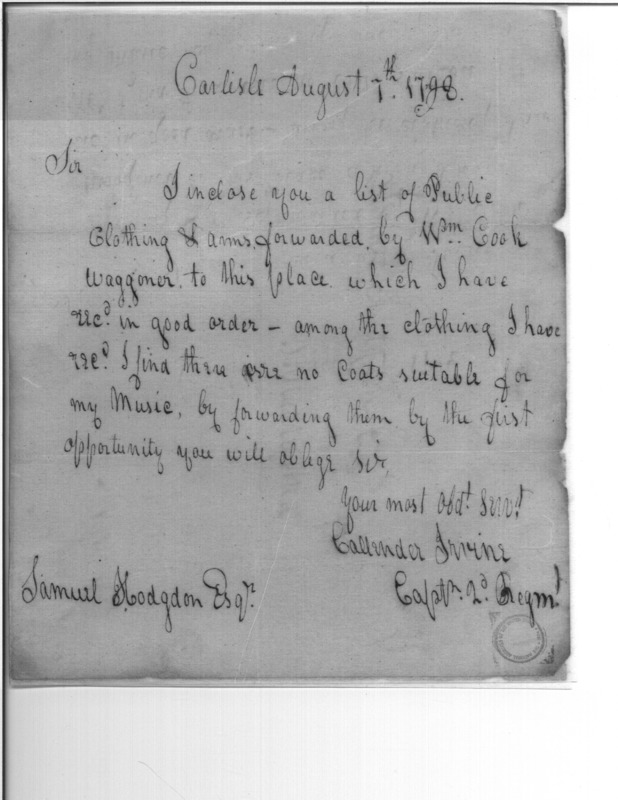 Carlisle August 7th. 1798.
Sir
I inclose you a list of Public
Clothing & arms, forwarded, by Wm. Cook
Waggoner, to this place which I have
recd. in good order – among the clothing I have
recd. I find there are no Coats suitable for
my Music, by forwarding them by the first
opportunity you will oblige sir,
Your most Obdt. Servt.
Callender Irvine
Captn. 2d. Regmt
Samuel Hodgdon Esqr.